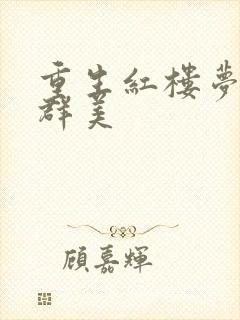 重生紅樓夢
群美
顧嘉輝